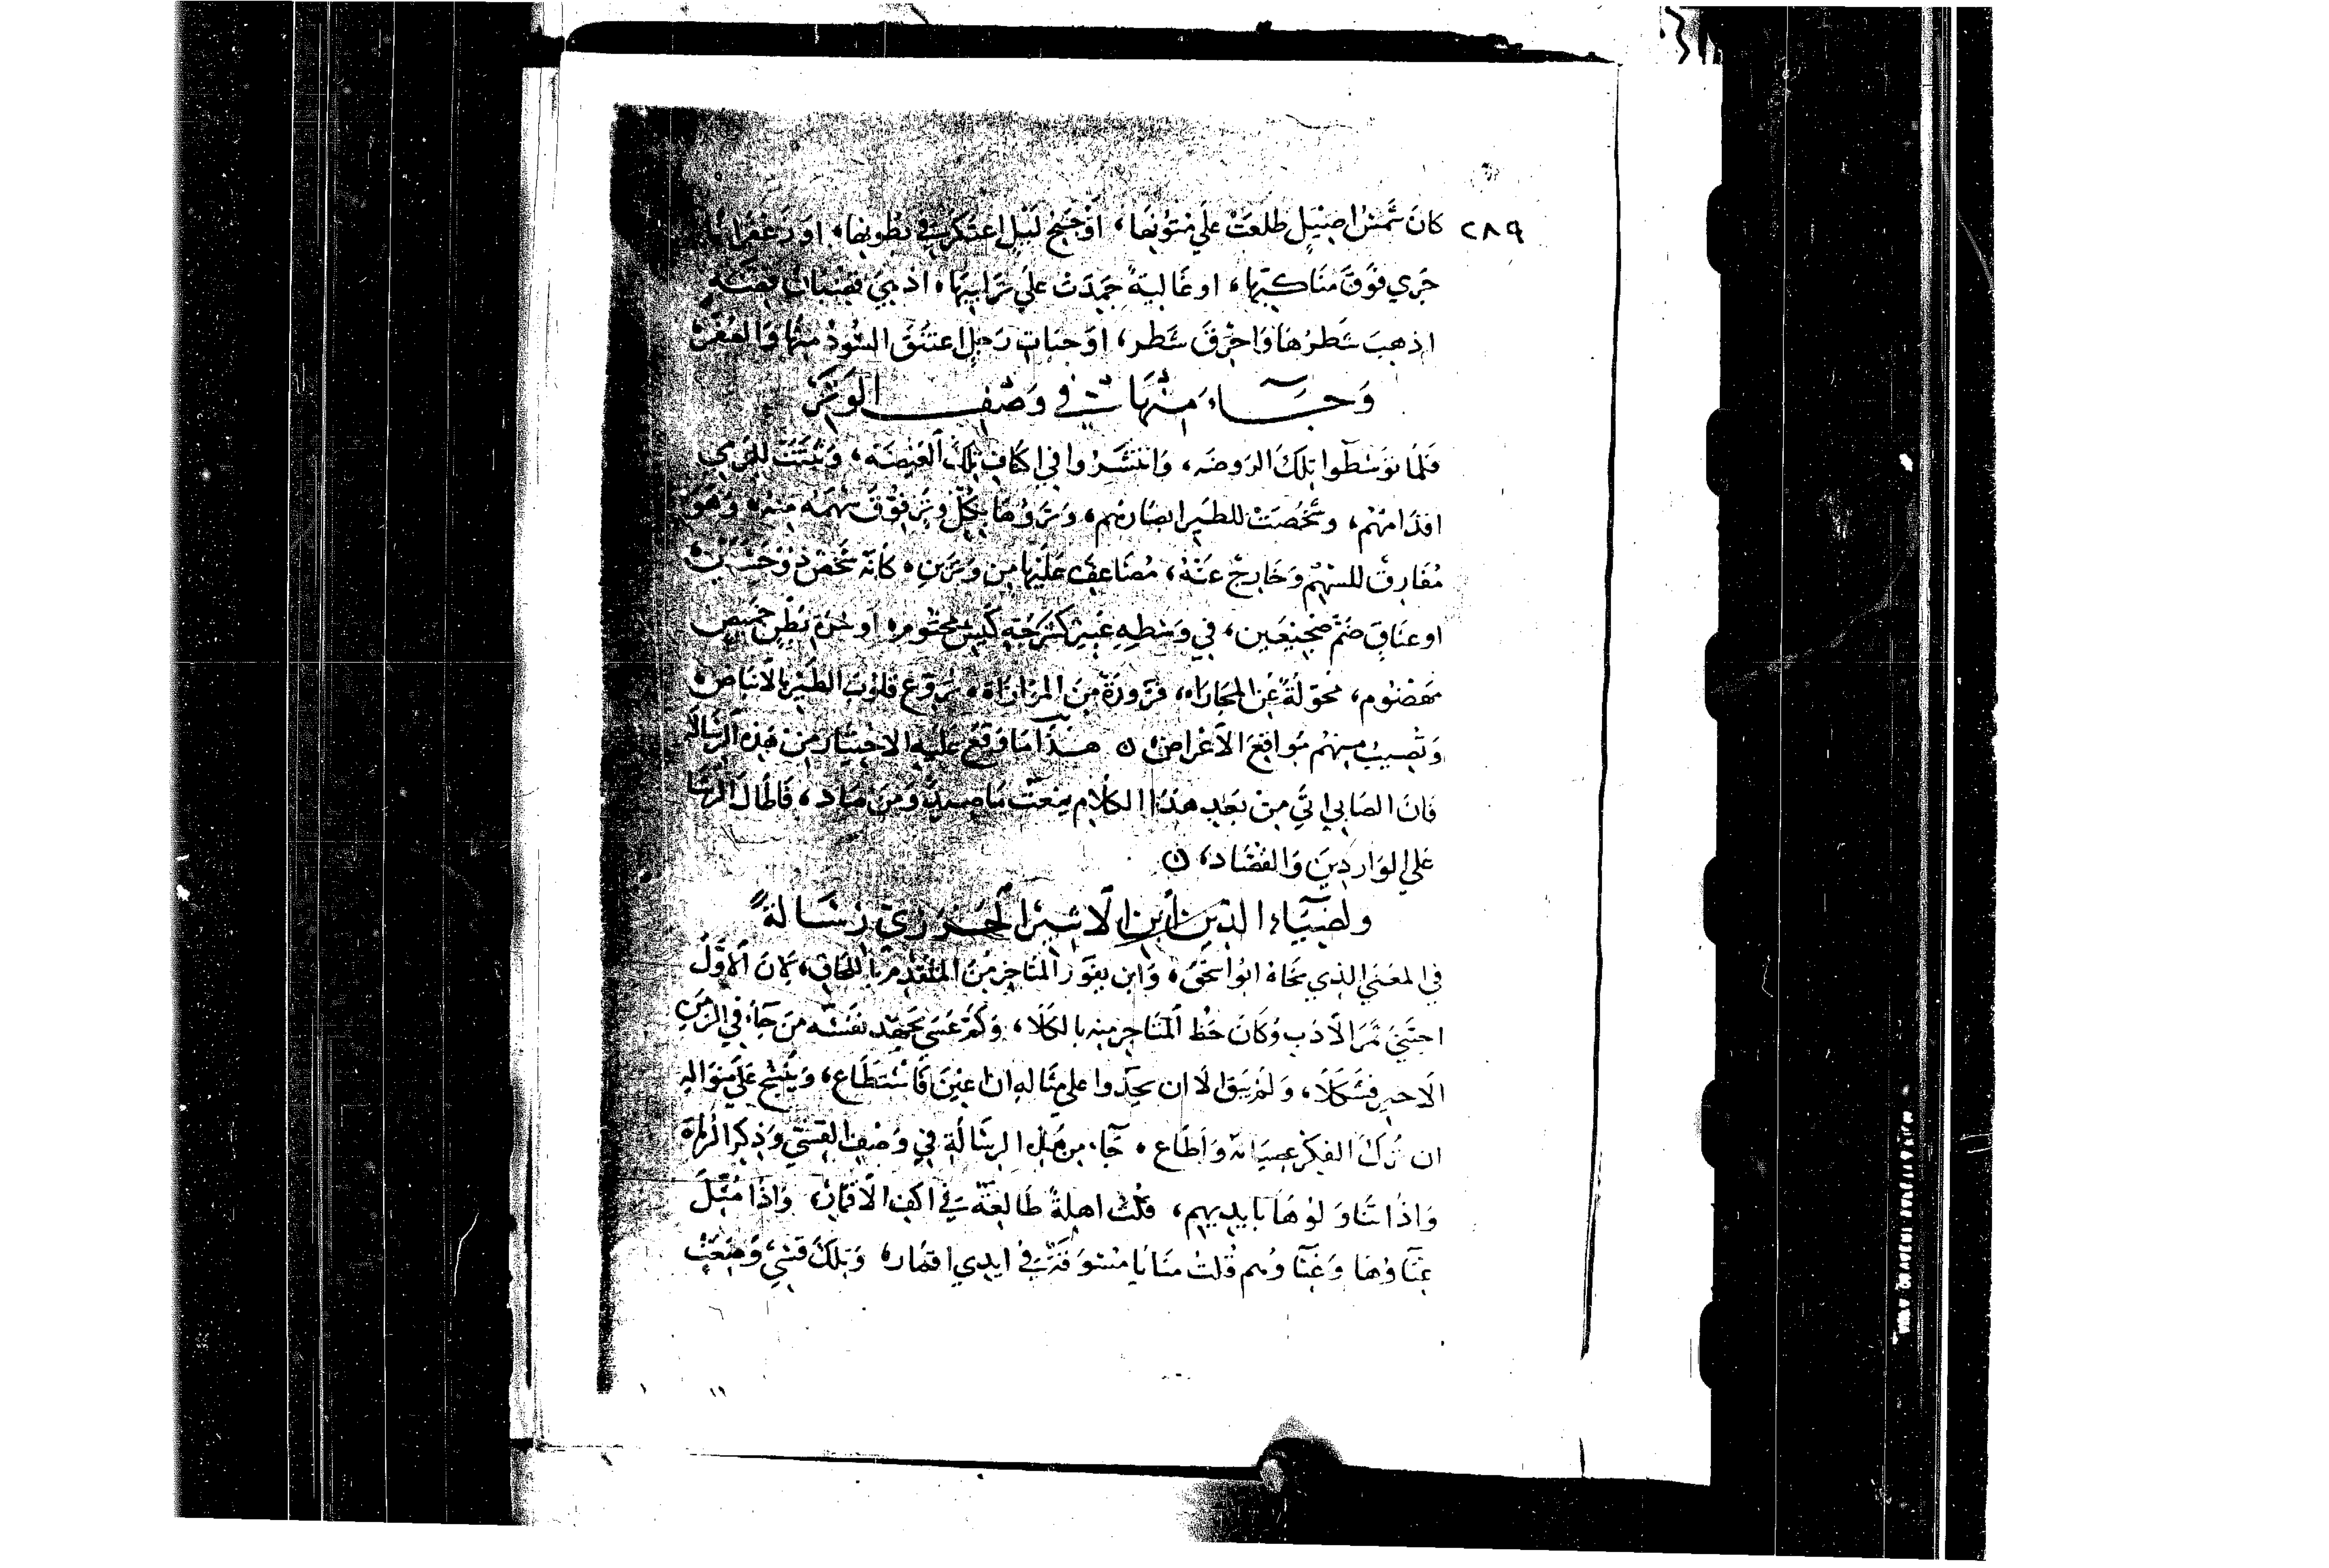 ٢٨٩
كان شمسُ اصيل طلعَتْ علي متُونها، او جُنح ليْل اعتكرَ في بطُونها، او زعفرانًا
جَرَي فوق مناكبها، او غاليةً جمدَتْ علي ترايبها، او هي قضبان فضة
اذهبَ شطرُها واحرِقَ شطر، او حيات رَمل اعتنق السُود منها والصُفر
وَجَاءَ منهَا في وَصْف الوَتَر
فلما توسَّطوا تلك الروضه، وانتشرُوا في اكناف تلك الغيضَه، وثبتَت للرمي
اقدامُهُم، وشخُصَتْ للطير ابصَارهُم، وتروها بكل وترٍ فوق سَهمَه منه، وهو
مُفارق للسهم وخارج عنهُ، مُضاعف عليها من وترين، كأنه شخص ذو جسدين
او عناق ضَمَّ ضجيعَين، في وسطه عين كشرجة كيس مختوم، او سرة بَطن خميص
مهضُوم، محوّلة عن المحاراه، مَزورة من المزاراه، تروّع قلوب الطير بالانباض
وتصيبُ منهُم مَواقعَ الاغراض ن هذا ما وَقَع عليه الاختيار من هذه الرسَاله
فان الصَابي اتي من بَعد هذا الكلام بنعت ما صيد ومن صاد، فاطال الرشا
علي الوَاردينَ والقُصّاد، ن
ولضياء الدين ابن الاثير الجَزري رسَالة
في المعني الذي نحاهُ ابُو اسحق، واين يفوز المتاخر من المتقدم باللحاق، لان الاوّل
اجتني ثمر الادَب وكان حظ المتاخر منه بالكلا، وكم عسَي يجهد نفسَه من جآء في الزمن
الاخير فشكلا، ولم يَبق الا ان يحذوا علي مثاله ان اعين فاستطاع، وينسج علي منواله
ان ترك الفكر عصيانه وَاطاع، جآء من هذه الرسَالة في وَصف القسي وَذكر الرماة
وَاذا تناوَلوُها بايديهم، قلتَ اهلةً طالعَة في اكف الاقمار، وَاذا مُثّل
غناؤها وَغناؤهم قلتَ منايا مسوقة في ايدي اقمار، وتلك قسي وضعَت